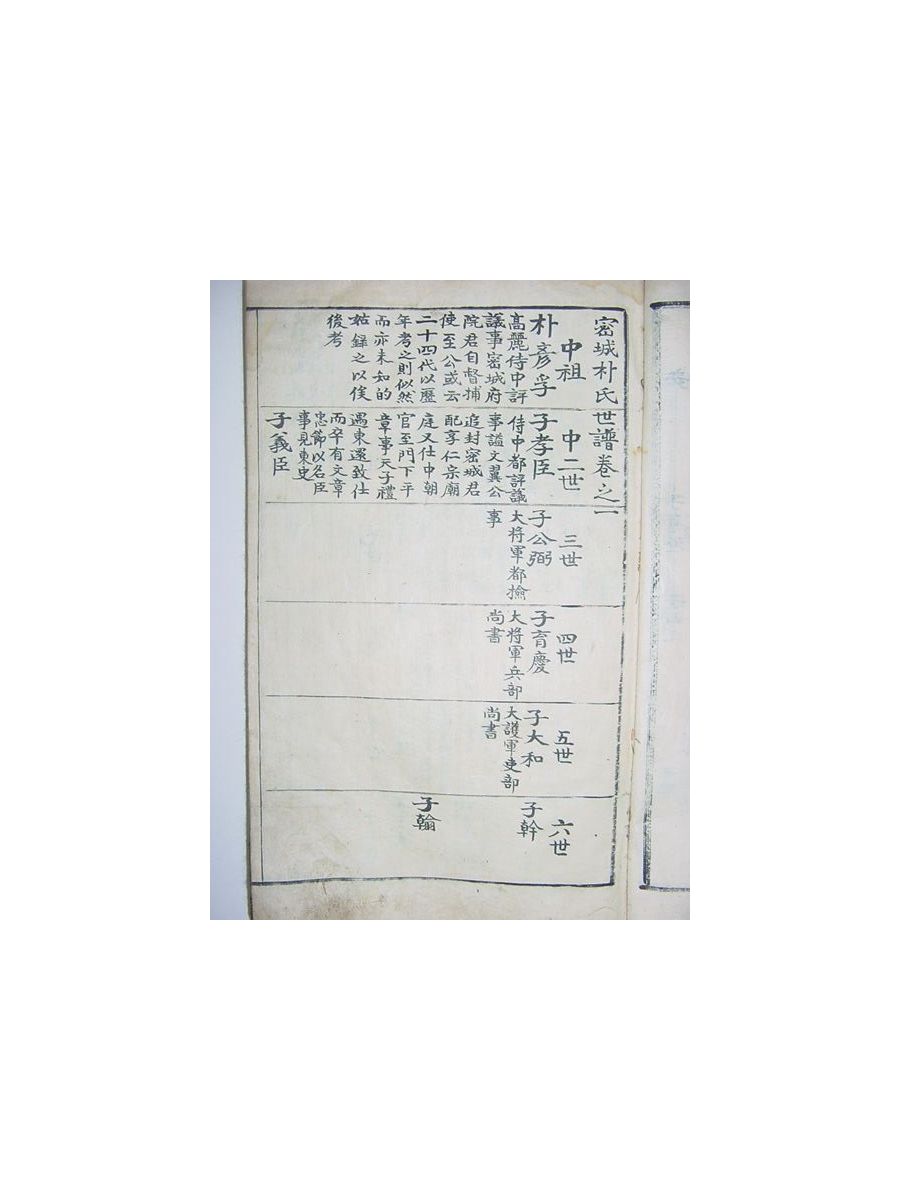 密城朴氏世譜卷之一
中祖
朴彦孚
高麗侍中評
議事密城府
院君自督捕
使至公或云
二十四代以歷
年考之則似然
而亦未知的
姑錄之以俟
後考
中二世
子孝臣
侍中都評議
事謚文翼公
追封密城君
配享仁宗廟
庭又仕中朝
官至門下平
章事天子禮
遇東還致仕
而卒有文章
忠節以名臣
事見東史
子義臣
三世
子公弼
大将軍都撿
事
四世
子育慶
大将軍兵部
尚書
五世
子大和
大護軍吏部
尚書
六世
子幹
子翰